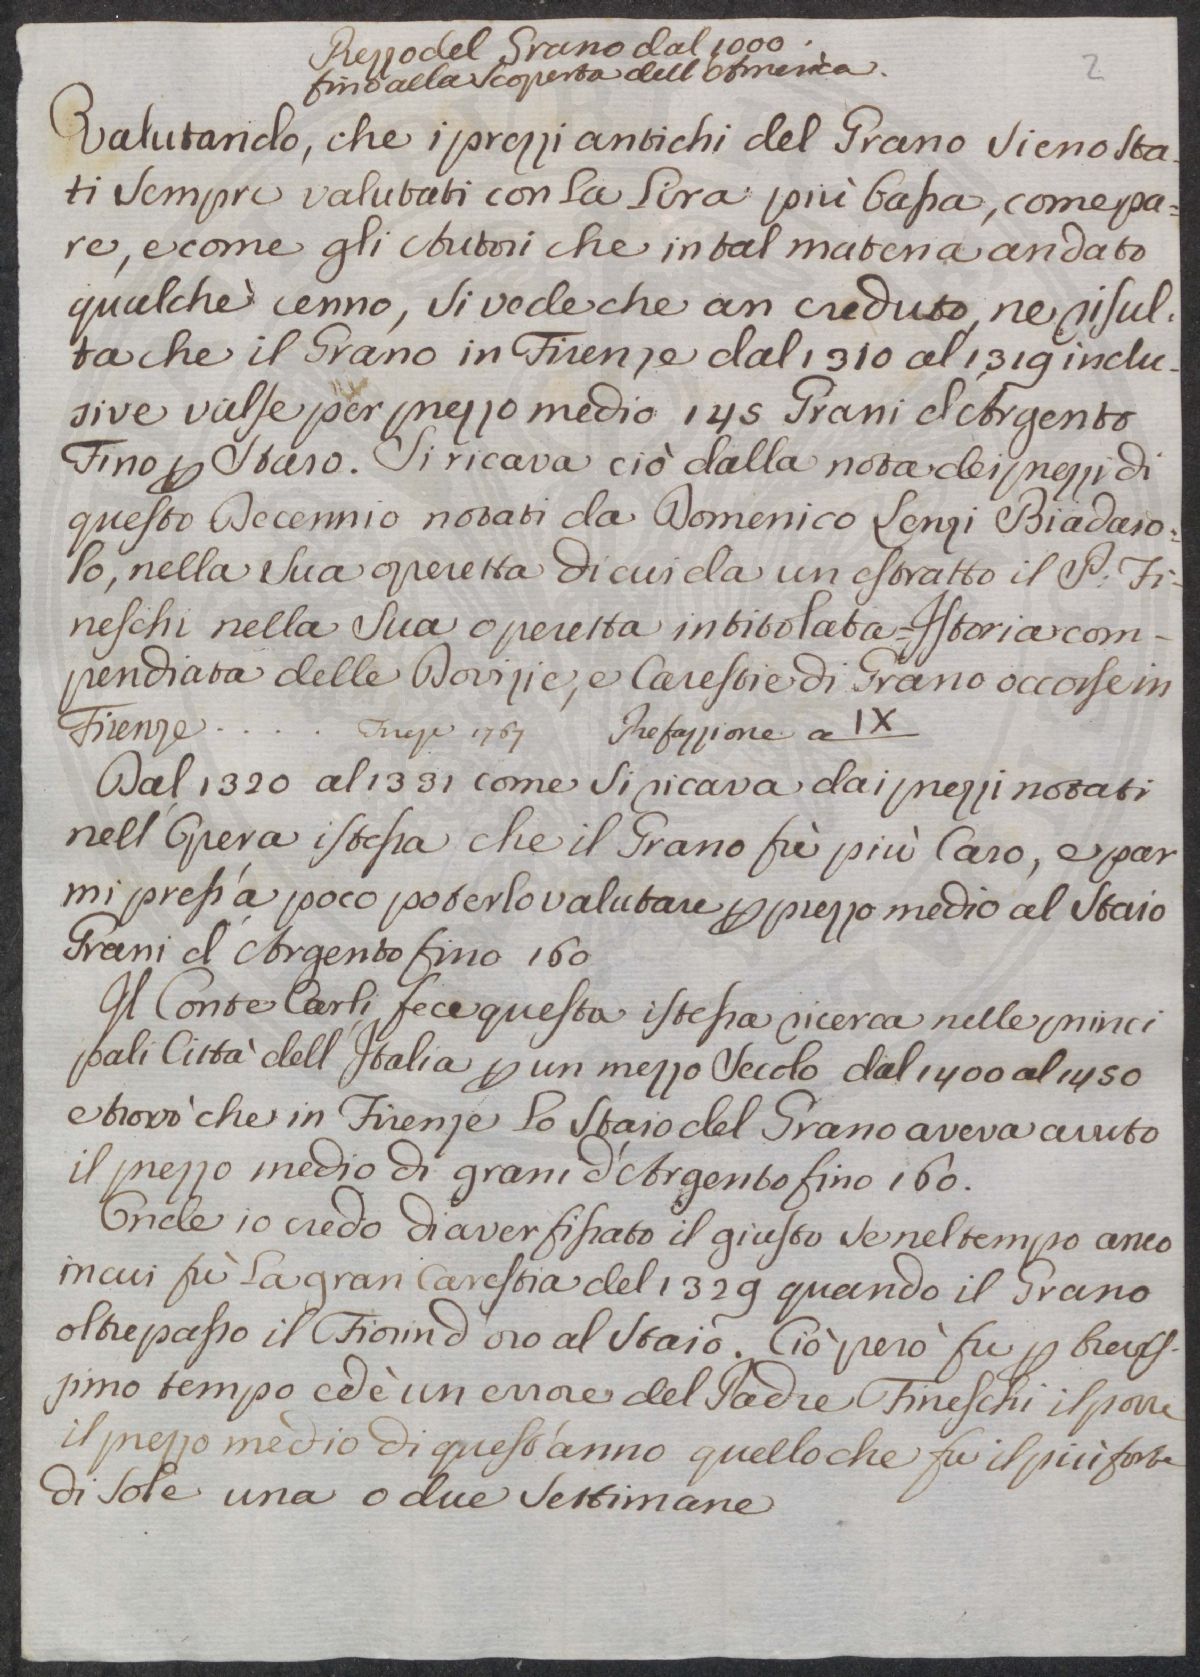 Prezzo del Grano dal 1000.
fino alla Scoperta dell'America.
2
Valutando, che i prezzi antichi del Grano Sieno Sta-
ti Sempre valutati con La Lira più bassa, come pa=
re, e come gli Autori che in tal materia an dato
qualche cenno, Si vede che an creduto, ne risul-
ta che il Grano in Firenze dal 1310 al 1319 inclu-
sive valse per prezzo medio 145 Grani d'Argento
Fino p Staro. Si ricava ciò dalla nota dei prezzi di
questo Decennio notati da Domenico Lenzi Biadaro=
lo, nella Sua operetta di cui da un estratto il P. Fi-
neschi nella Sua operetta intitolata = Istoria com-
pendiata delle Dovizie, e Carestie di Grano occorse in
Firenze . . . . . Firenze 1767 Prefazzione a IX
Dal 1320 al 1331 come Si ricava dai prezzi notati
nell'Opera istessa che il Grano fù più Caro, e par
mi press'a poco poterlo valutare p prezzo medio al Staio
Grani d'Argento fino 160
Il Conte Carli fece questa istessa ricerca nelle princi
pali Città dell'Italia p un mezzo Secolo dal 1400 al 1450
e trovò che in Firenze Lo Staio del Grano aveva avuto
il prezzo medio di grani d'Argento fino 160.
Onde io credo di aver fissato il giusto Se nel tempo anco
in cui fù La gran Carestia del 1329 quando il Grano
oltrepasso il Fiorin d'oro al Staio. Ciò però fu p brevis-
simo tempo ed è un errore del Padre Fineschi il porre
il prezzo medio di quest'anno quello che fu il più forte
di Sole una o due Settimane